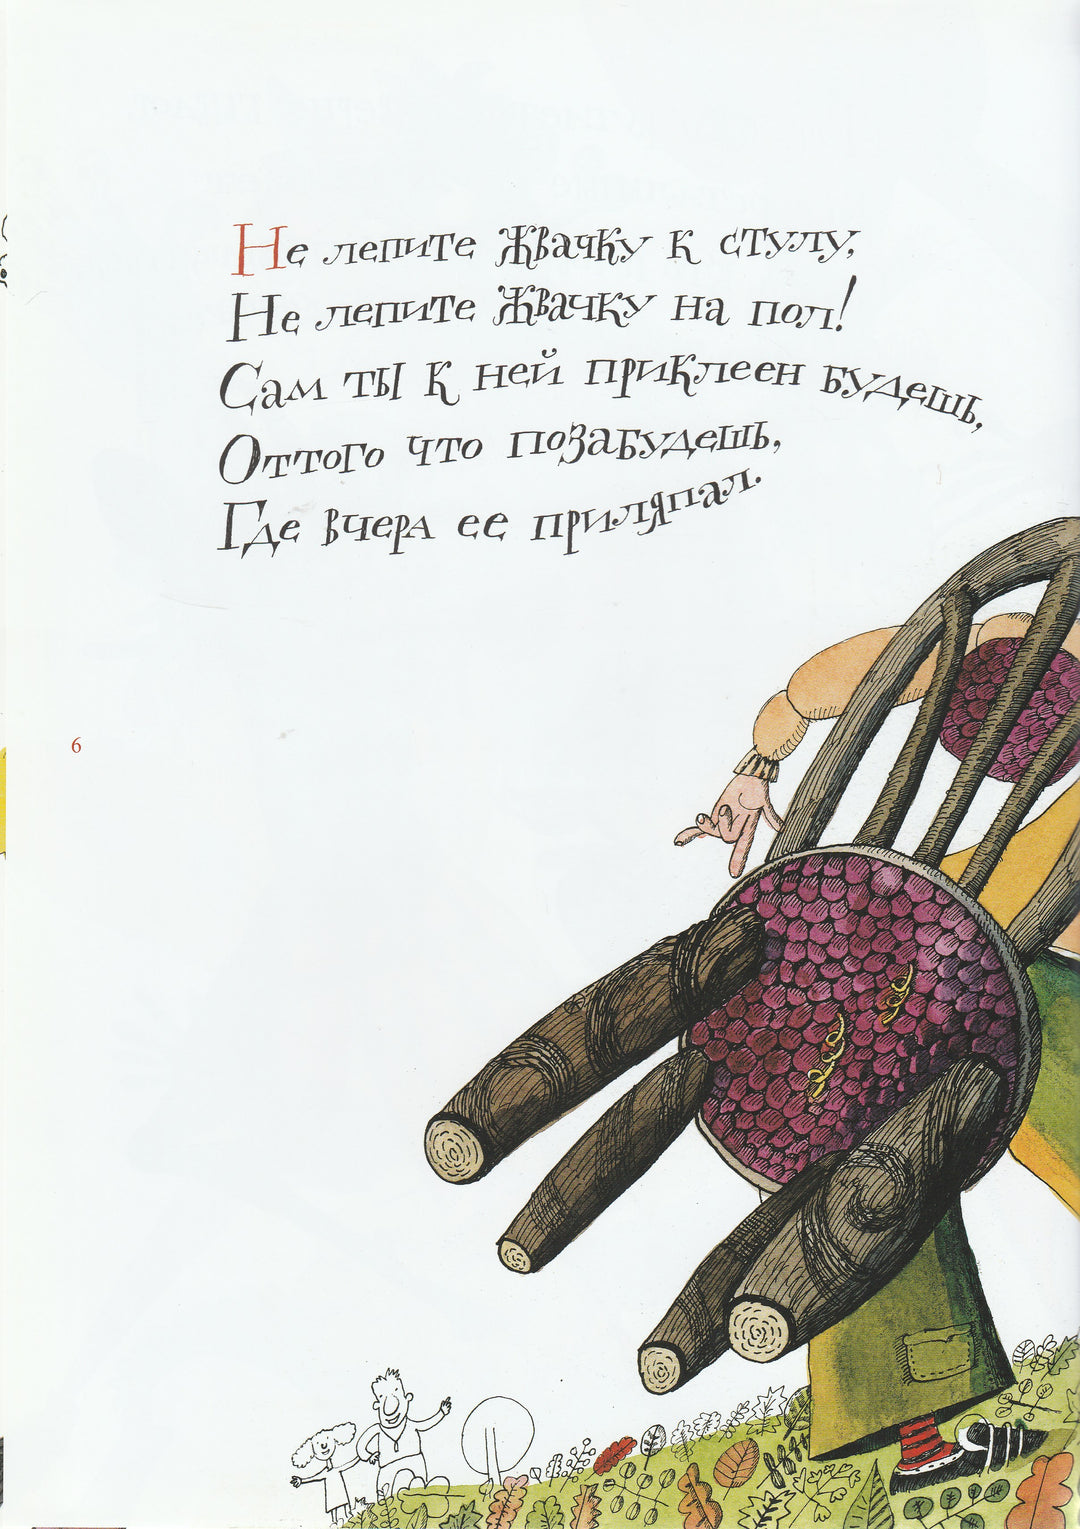 Не лепите жвачку к стулу,
Не лепите жвачку на пол!
Сам ты к ней приклеен будешь,
Оттого что позабудешь,
Где вчера ее приляпал.
6